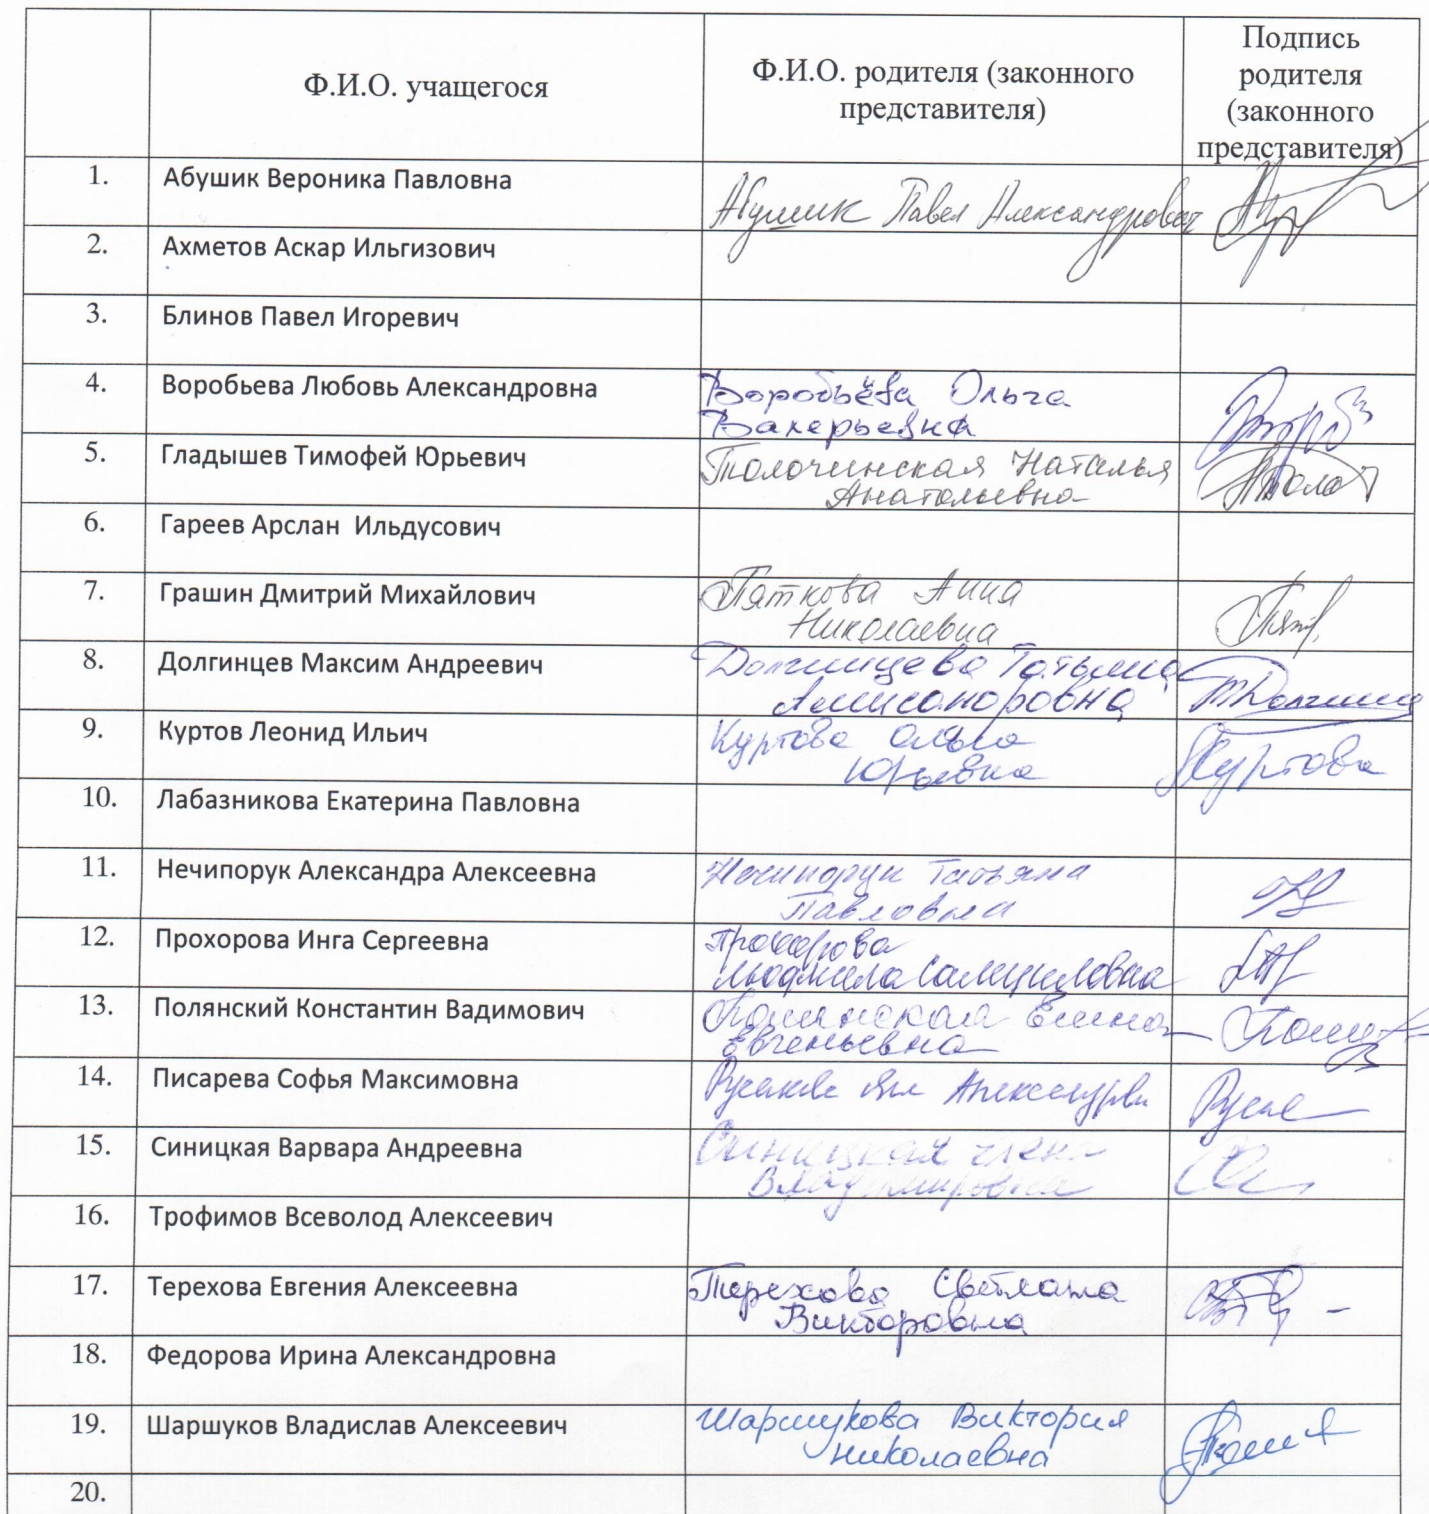 Ф.И.О. учащегося
Ф.И.О. родителя (законного
представителя)
Подпись
родителя
(законного
представителя)
1. Абушик Вероника Павловна
Абушик Павел Александрович
2. Ахметов Аскар Ильгизович
3. Блинов Павел Игоревич
4. Воробьева Любовь Александровна
Воробьёва Ольга
Валерьевна
5. Гладышев Тимофей Юрьевич
Толочинская Наталья
Анатольевна
6. Гареев Арслан Ильдусович
7. Грашин Дмитрий Михайлович
Пяткова Анна
Николаевна
8. Долгинцев Максим Андреевич
Долгинцева Татьяна
Александровна
9. Куртов Леонид Ильич
Куртова Ольга
Юрьевна
Куртова
10. Лабазникова Екатерина Павловна
11. Нечипорук Александра Алексеевна
Нечипорук Татьяна
Павловна
12. Прохорова Инга Сергеевна
Прохорова
Людмила
13. Полянский Константин Вадимович
Полянская Елена
Евгеньевна
14. Писарева Софья Максимовна
15. Синицкая Варвара Андреевна
Синицкая Елена
Владимировна
16. Трофимов Всеволод Алексеевич
17. Терехова Евгения Алексеевна
Терехова Светлана
Викторовна
18. Федорова Ирина Александровна
19. Шаршуков Владислав Алексеевич
Шаршукова Виктория
Николаевна
20.